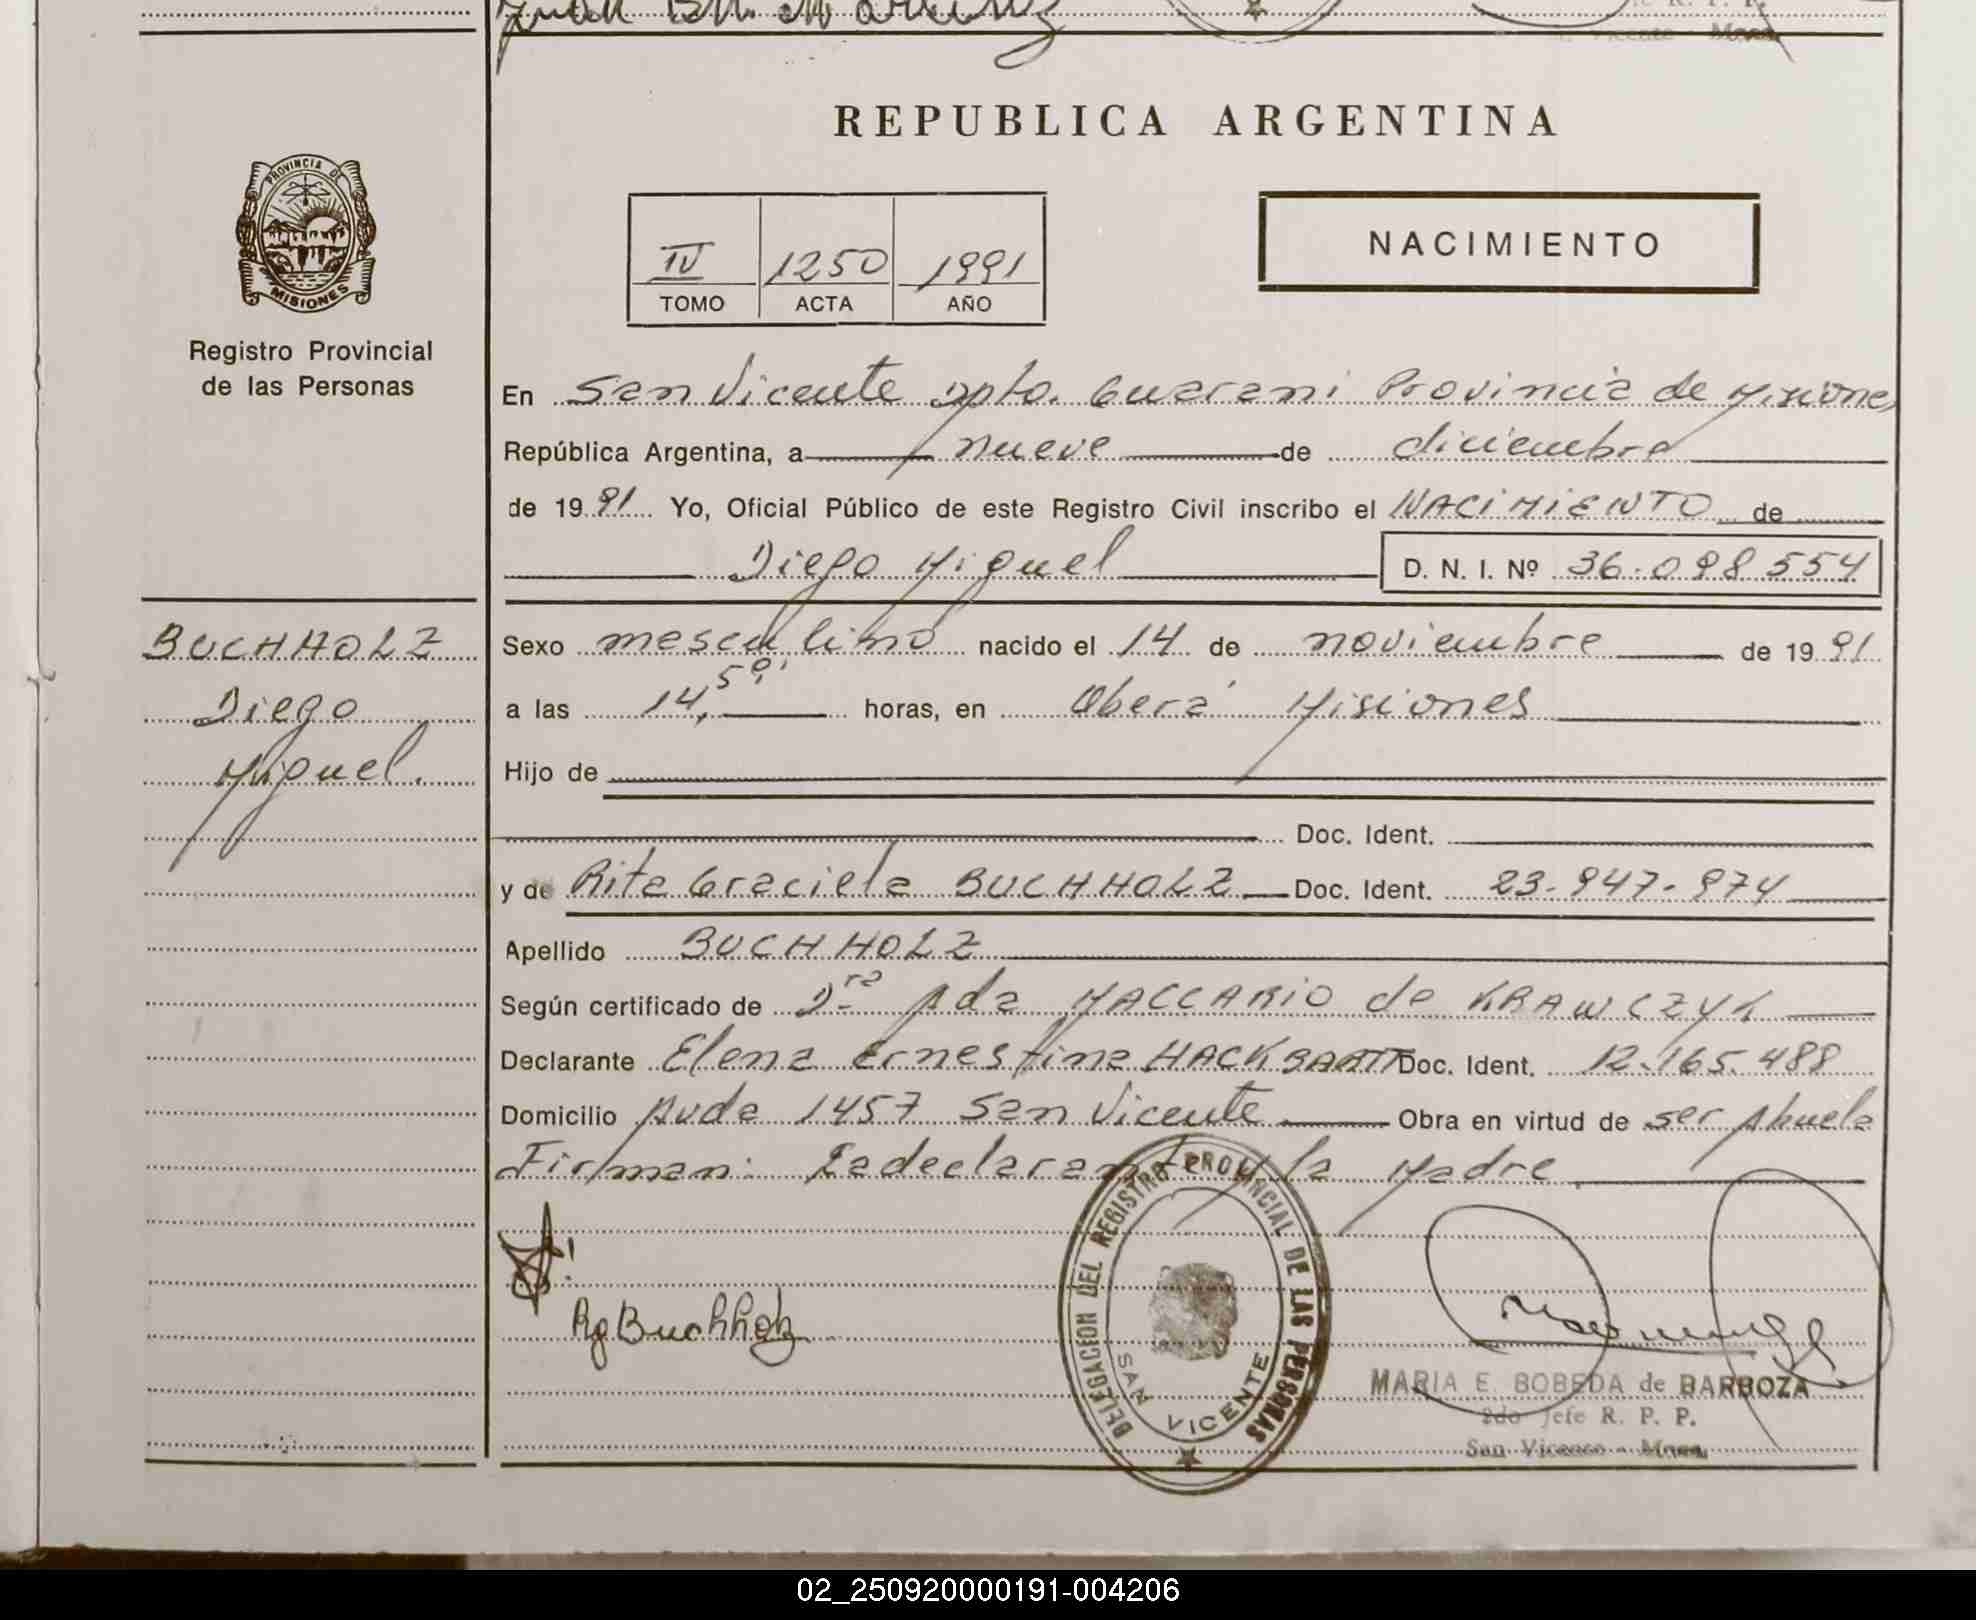 REPUBLICA ARGENTINA
PROVINCIA DE
MISIONES
Registro Provincial
de las Personas
IV 1250 1991
TOMO ACTA AÑO
NACIMIENTO
En San Vicente Dpto. Guarani Provincia de Misiones
República Argentina, a nueve de diciembre
de 1991 Yo, Oficial Público de este Registro Civil inscribo el NACIMIENTO de
Diego Miguel D. N. I. Nº 36.098.554
BUCHHOLZ
Diego
Miguel.
Sexo masculino nacido el 14 de noviembre de 1991
a las 14,50 horas, en Oberá Misiones
Hijo de
Doc. Ident.
y de Rita Graciela BUCHHOLZ Doc. Ident. 23.947.974
Apellido BUCHHOLZ
Según certificado de Dra Ada MACCARIO de KRAWCZYK
Declarante Elena Ernestina HACKBARTT Doc. Ident. 12.165.488
Domicilio Avda 1457 San Vicente Obra en virtud de ser Abuela
Firman: La declarante y la Madre
Rg Buchholz
DELEGACION DEL REGISTRO PROVINCIAL DE LAS PERSONAS
SAN VICENTE
MARIA E. BOBEDA de BARBOZA
2do Jefe R. P. P.
San Vicente - Mnes.
02_250920000191-004206